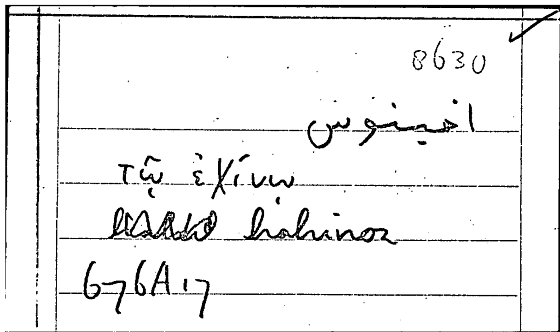 8630
اخينوس
τῷ ἐχίνῳ
676A17